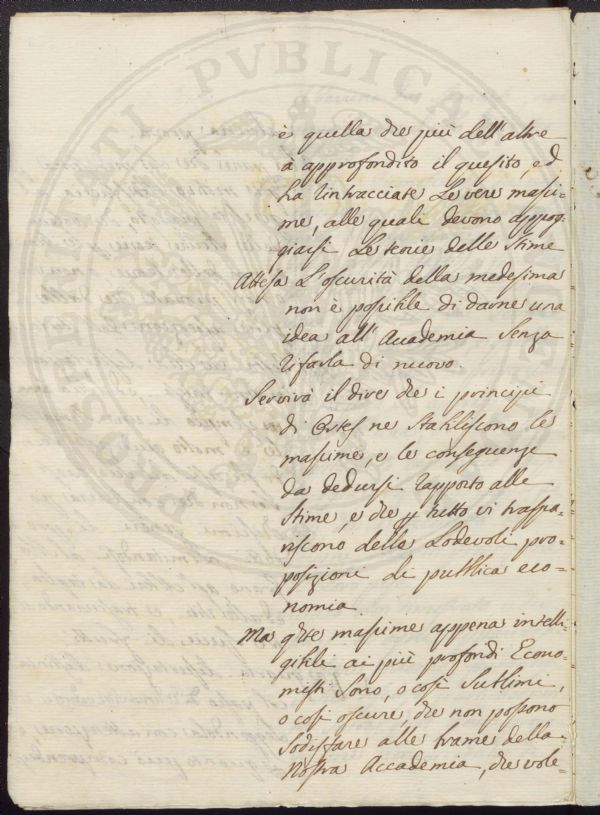 è quella che più dell'altre
à approfondito il quesito, ed
ha rintracciate le vere massi=
me, alle quali devono appog=
giarsi le teorie delle stime
Attesa l'oscurità della medesima
non è possibile di darne una
idea all'Accademia senza
rifarla di nuovo.
Servirà il dire che i principj
di Ortes ne stabliscono le
massime, e le conseguenze
da dedursi rapporto alle
stime, e che p tutto vi traspa=
riscono delle lodevoli pro=
posizioni di pubblica eco=
nomia.
Ma qste massime appena intelli=
gibile ai più profondi Econo=
misti sono, o così sublimi,
o così oscure, che non possono
sodisfare alle brame della
Nostra Accademia, che vole=
PVBLICA